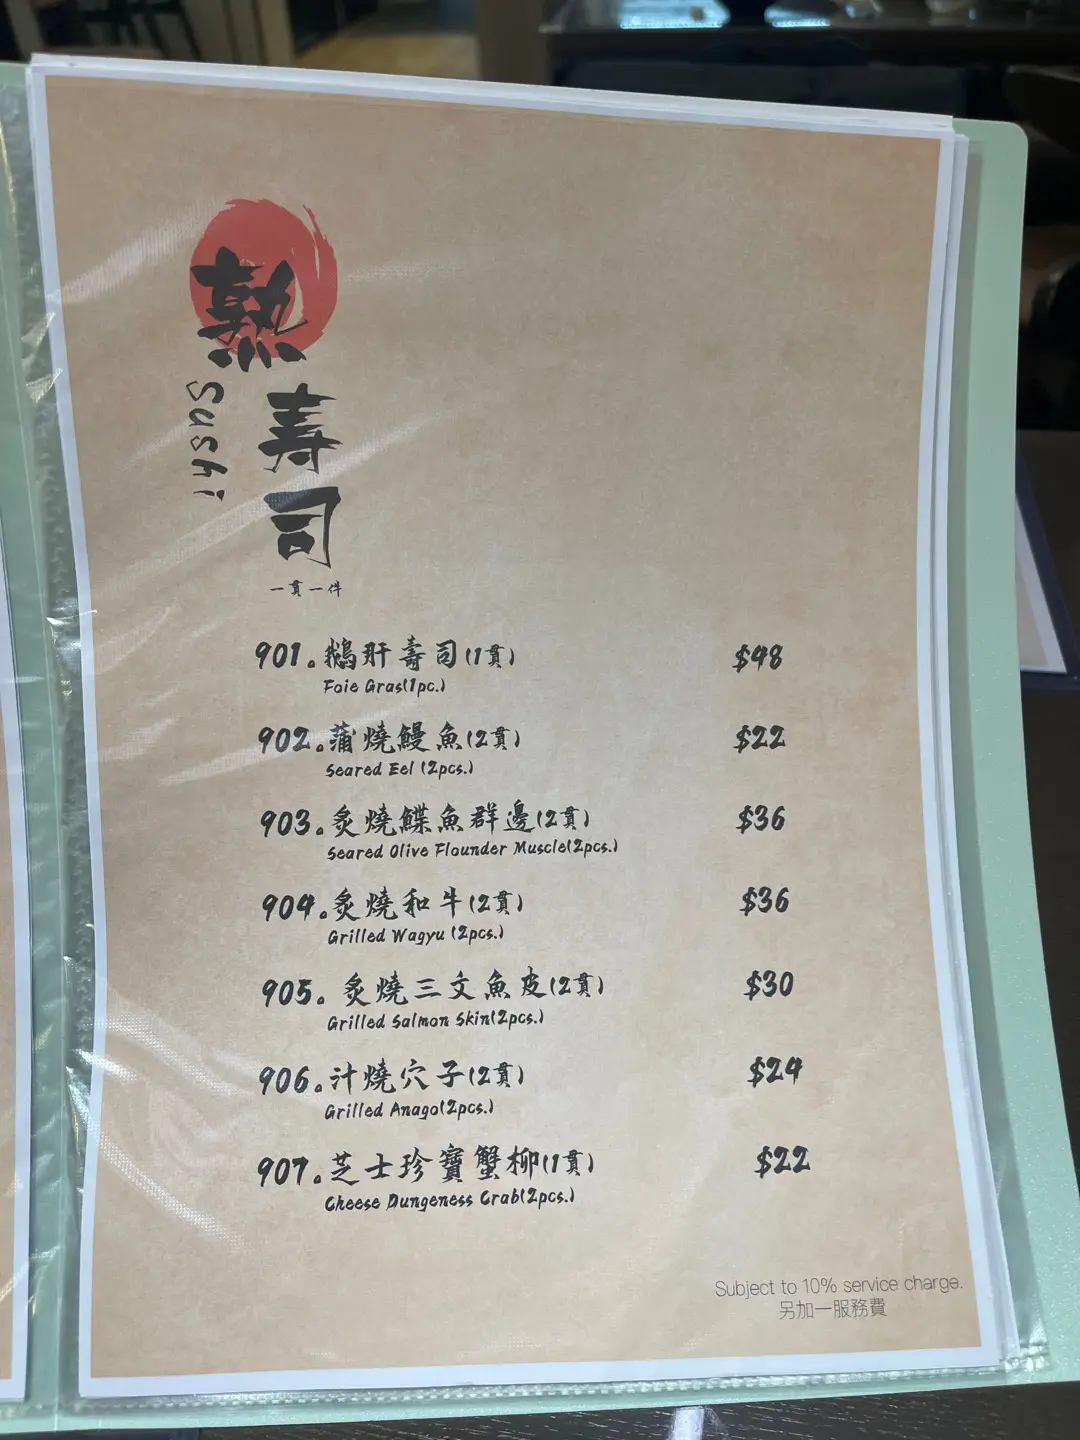 熟壽司
Sushi
一貫一件
901.鵝肝壽司(1貫) $48
Foie Gras(1pc.)
902.蒲燒鰻魚(2貫) $22
Seared Eel (2pcs.)
903.炙燒鰈魚群邊(2貫) $36
Seared Olive Flounder Muscle(2pcs.)
904.炙燒和牛(2貫) $36
Grilled Wagyu (2pcs.)
905.炙燒三文魚皮(2貫) $30
Grilled Salmon Skin(2pcs.)
906.汁燒穴子(2貫) $24
Grilled Anago(2pcs.)
907.芝士珍寶蟹柳(1貫) $22
Cheese Dungeness Crab(2pcs.)
Subject to 10% service charge.
另加一服務費